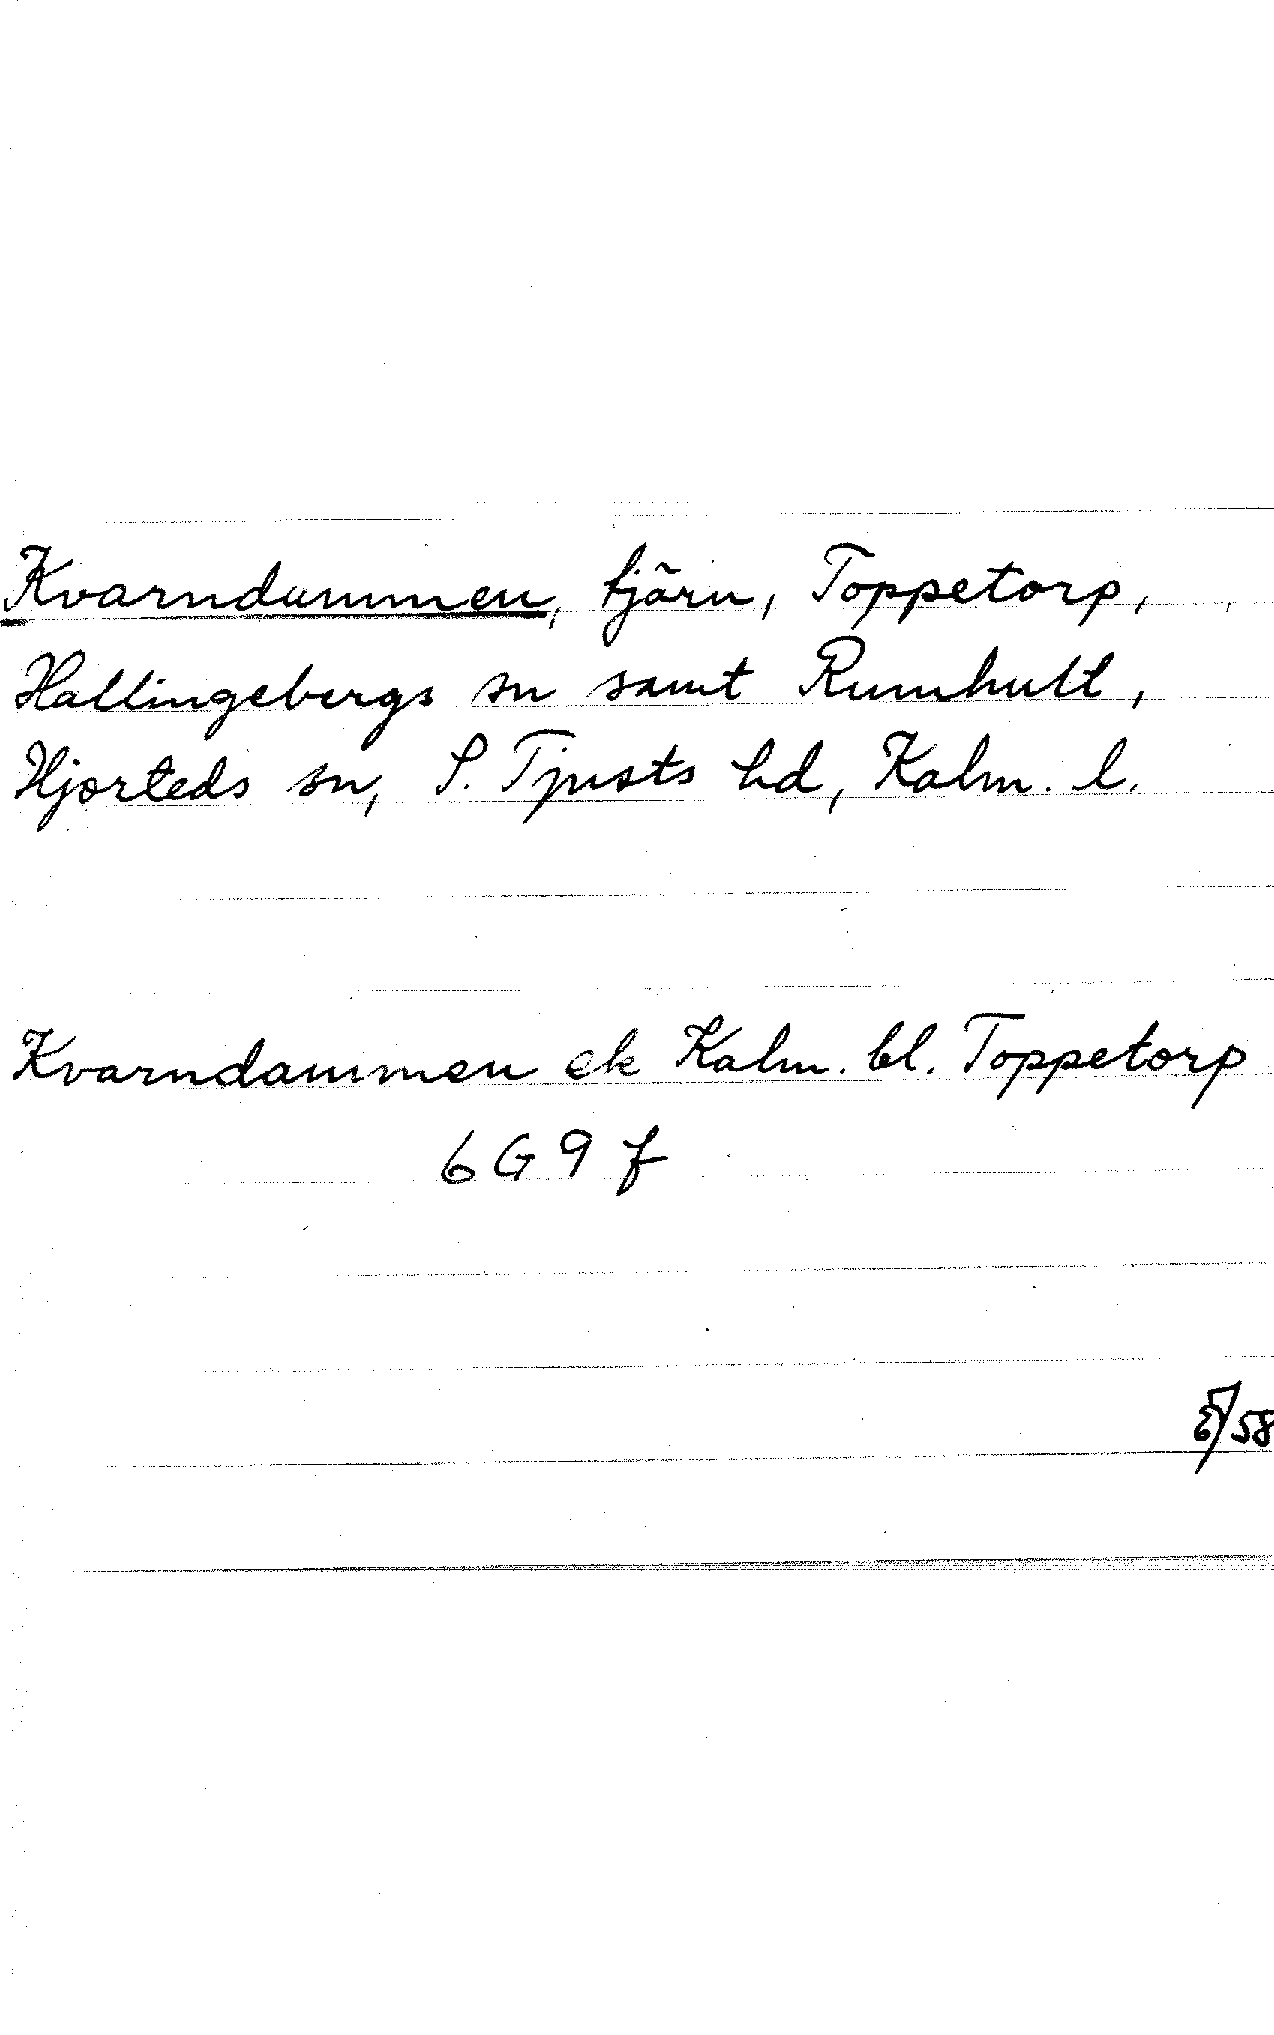 Kvarndammen, tjärn, Toppetorp,
Hallingebergs sn samt Rumhult,
Hjorteds sn, S. Tjusts hd, Kalm. l.
Kvarndammen ek Kalm. bl. Toppetorp
6 G 9 f
/58